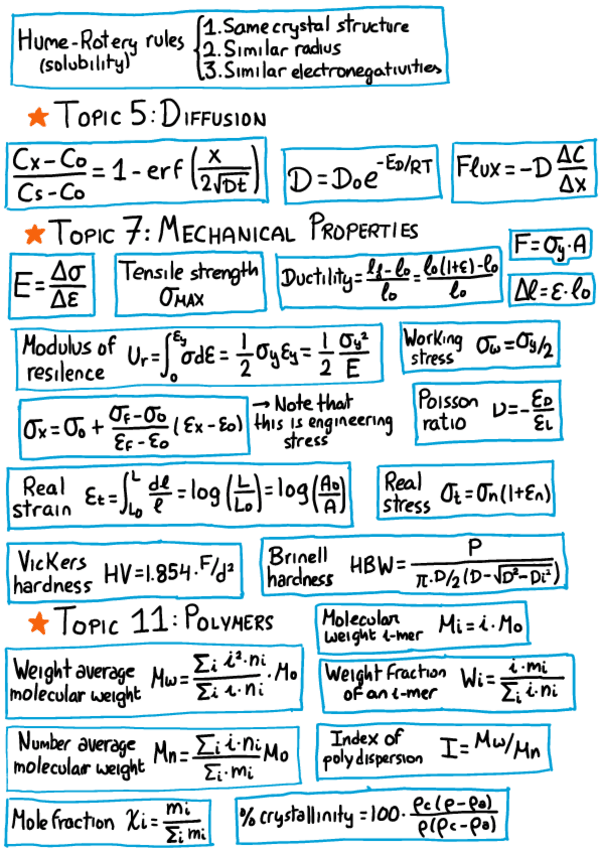 Hume-Rotery rules (solubility) { 1. Same crystal structure
2. Similar radius
3. Similar electronegativities
★ TOPIC 5: DIFFUSION
(Cx-C0)/(Cs-C0) = 1 - erf (x/(2√Dt))
D = D0 e^(-ED/RT)
Flux = -D ΔC/Δx
★ TOPIC 7: MECHANICAL PROPERTIES
F = σy · A
E = Δσ/Δε
Tensile strength σMAX
Ductility = (lf - l0)/l0 = (l0(1+ε) - l0)/l0
Δl = ε · l0
Modulus of resilence Ur = ∫0^εy σdε = 1/2 σy εy = 1/2 σy²/E
Working stress σw = σy/2
σx = σ0 + (σF - σ0)/(εF - ε0) (εx - ε0)
→ Note that
this is engineering
stress
Poisson ratio ν = - εD/εL
Real strain εt = ∫L0^L dl/l = log(L/L0) = log(A0/A)
Real stress σt = σn(1+εn)
Vickers hardness HV = 1.854 · F/d²
Brinell hardness HBW = P/(π·D/2 (D - √(D² - Di²)))
★ TOPIC 11: POLYMERS
Molecular weight i-mer Mi = i · M0
Weight average molecular weight Mw = (Σi i²·ni)/(Σi i·ni) · M0
Weight fraction of an i-mer Wi = (i·mi)/(Σi i·ni)
Number average molecular weight Mn = (Σi i·ni)/(Σi·mi) M0
Index of polydispersion I = Mw/Mn
Mole fraction χi = mi/(Σi mi)
% crystallinity = 100 · (ρc(ρ-ρa))/(ρ(ρc-ρa))